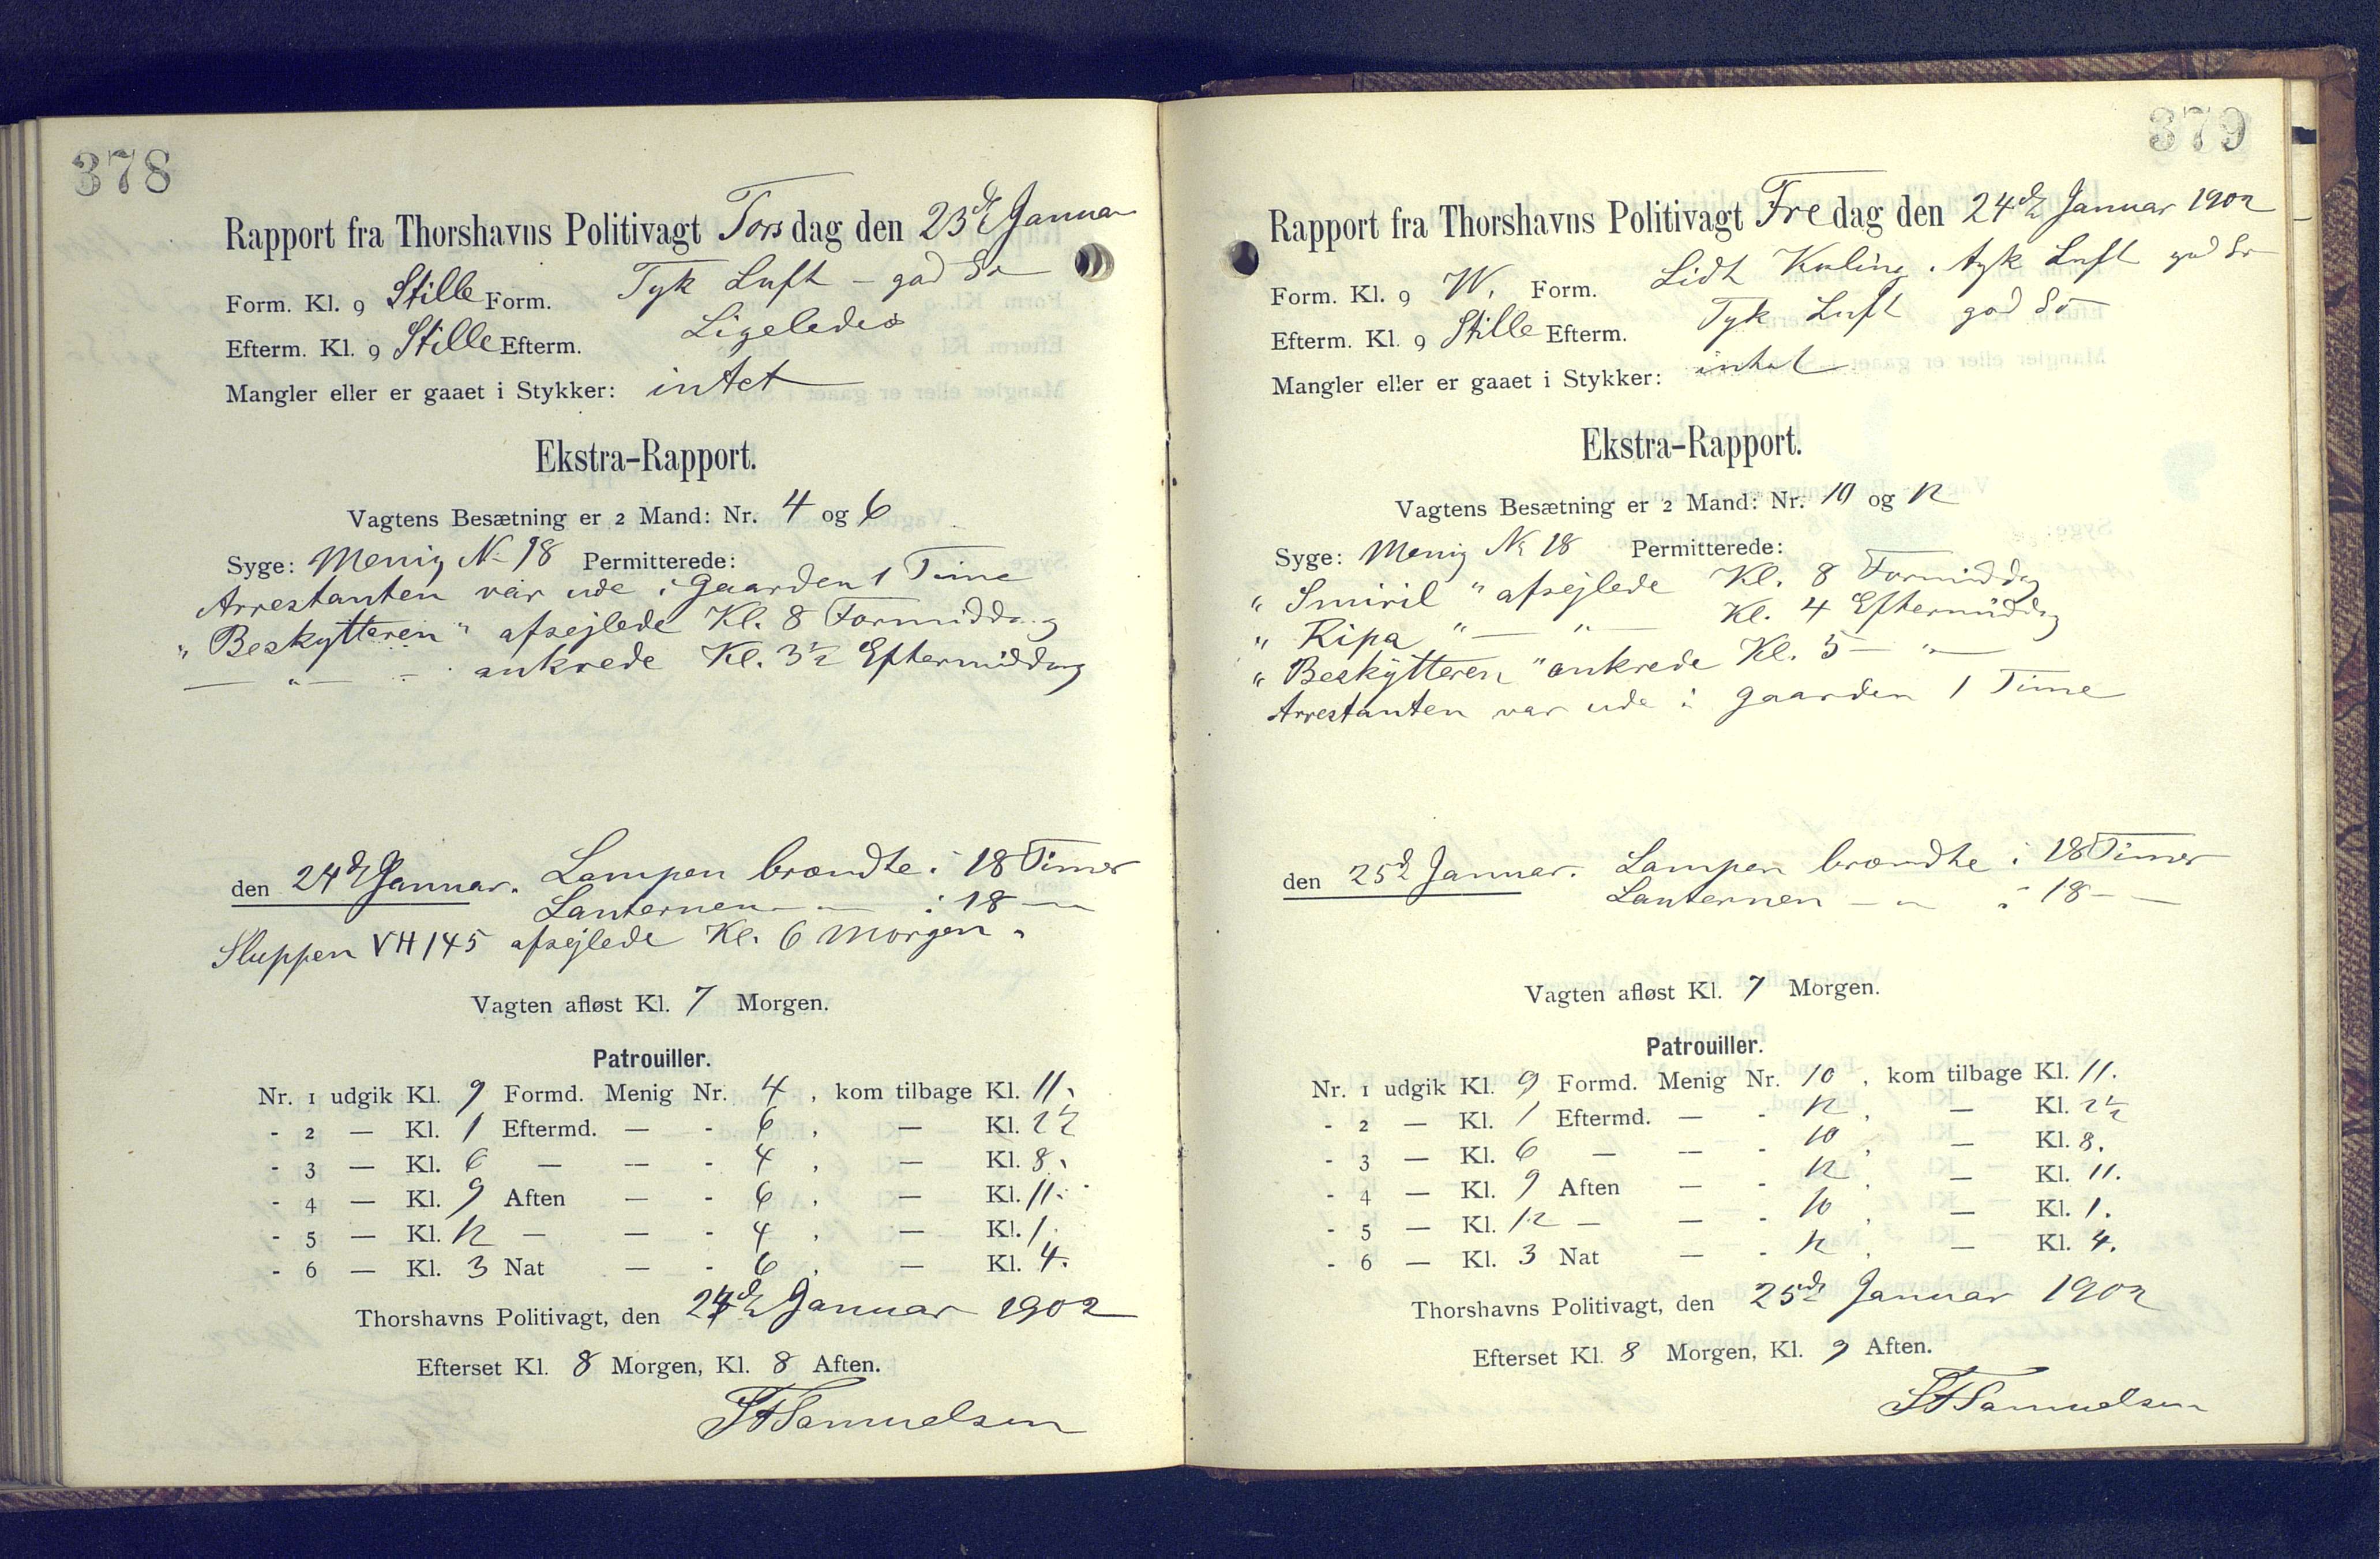 378
Rapport fra Thorshavns Politivagt Torsdag den 23de Januar
Form. Kl. 9 Stille Form. Tyk Luft – god Sø
Efterm. Kl. 9 Stille Efterm. Ligeledes
Mangler eller er gaaet i Stykker: intet
Ekstra-Rapport.
Vagtens Besætning er 2 Mand: Nr. 4 og 6
Syge: Menig No 18 Permitterede:
Arrestanten var ude i Gaarden 1 Time
"Beskytteren" afsejlede Kl. 8 Formiddag
— " — ankrede Kl. 3½ Eftermiddag
den 24de Januar. Lampen brændte i 18 Timer
Lanternen — " — i 18 — "
Sluppen VH 145 afsejlede Kl. 6 Morgen.
Vagten afløst Kl. 7 Morgen.
Patrouiller.
Nr. 1 udgik Kl. 9 Formd. Menig Nr. 4, kom tilbage Kl. 11.
- 2 — Kl. 1 Eftermd. — - 6, — Kl. 2½
- 3 — Kl. 6 — — - 4, — Kl. 8.
- 4 — Kl. 9 Aften — - 6, — Kl. 11.
- 5 — Kl. 12 — — - 4, — Kl. 1.
- 6 — Kl. 3 Nat — - 6, — Kl. 4.
Thorshavns Politivagt, den 24de Januar 1902
Efterset Kl. 8 Morgen, Kl. 8 Aften.
Samuelsen
379
Rapport fra Thorshavns Politivagt Fredag den 24de Januar 1902
Form. Kl. 9 W. Form. Lidt Kuling. tyk Luft god Sø
Efterm. Kl. 9 Stille Efterm. Tyk Luft god Sø
Mangler eller er gaaet i Stykker: intet
Ekstra-Rapport.
Vagtens Besætning er 2 Mand: Nr. 10 og 12
Syge: Menig No 18 Permitterede:
"Smiril" afsejlede Kl. 8 Formiddag
"Ripa" — " — Kl. 4 Eftermiddag
"Beskytteren" ankrede Kl. 5 — " —
Arrestanten var ude i Gaarden 1 Time
den 25de Januar. Lampen brændte i 18 Timer
Lanternen — " i 18 — —
Vagten afløst Kl. 7 Morgen.
Patrouiller.
Nr. 1 udgik Kl. 9 Formd. Menig Nr. 10, kom tilbage Kl. 11.
- 2 — Kl. 1 Eftermd. — - 12, — Kl. 2½
- 3 — Kl. 6 — — - 10, — Kl. 8.
- 4 — Kl. 9 Aften — - 12, — Kl. 11.
- 5 — Kl. 12 — — - 10, — Kl. 1.
- 6 — Kl. 3 Nat — - 12, — Kl. 4.
Thorshavns Politivagt, den 25de Januar 1902
Efterset Kl. 8 Morgen, Kl. 9 Aften.
Samuelsen